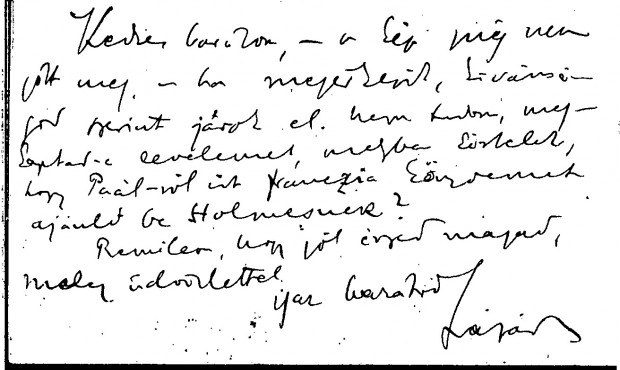 Kedves barátom, – a kép még nem
jött meg, – ha megérkezik, kívánsá-
god szerint járok el. Nem tudom, meg-
kaptad-e levelemet, melyben kértelek,
hogy Paál-ról írt francia könyvemet
ajánld be Holmesnek?
Remélem, hogy jól érzed magad,
meleg üdvözlettel
igaz barátod
Lázár